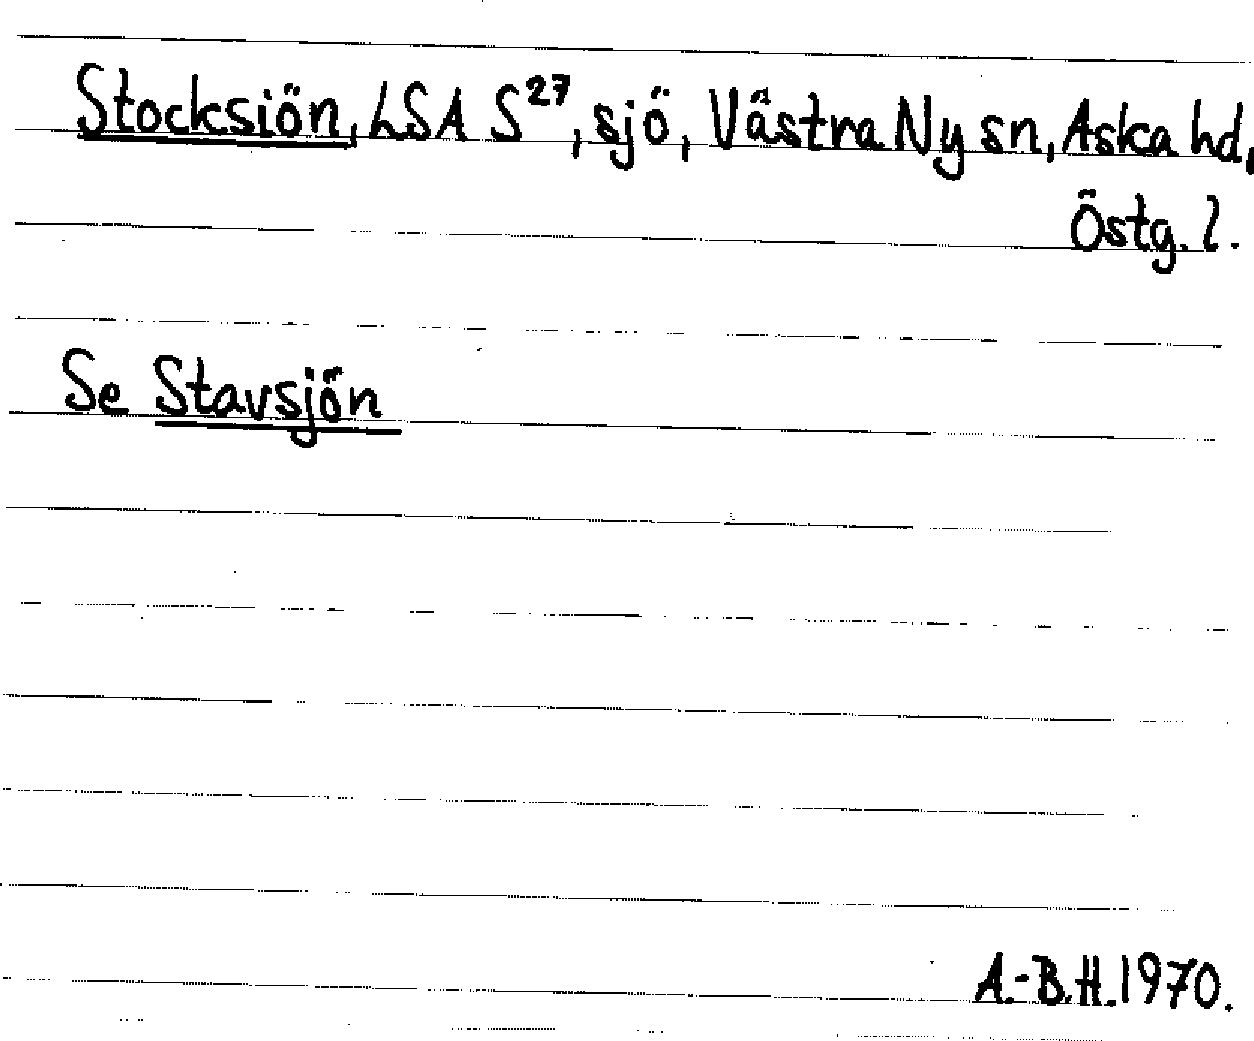 Stocksiön, LSA S²⁷, sjö, Västra Ny sn, Aska hd,
Östg. l.
Se Stavsjön
A.-B.H. 1970.